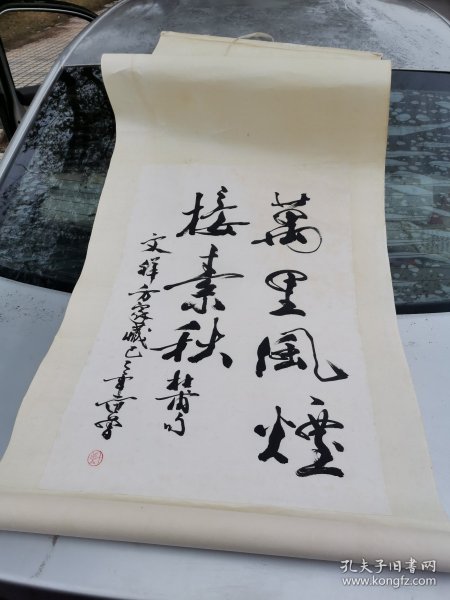 萬里風煙
接素秋 杜甫句
文祥方家藏 己
孔夫子旧书网
www.kongfz.com